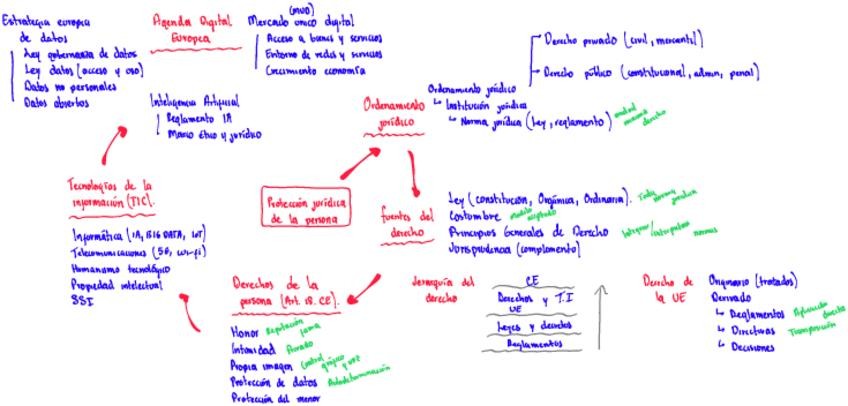 Estrategia europea
de datos
Ley gobernanza de datos
Ley datos (acceso y uso)
Datos no personales
Datos abiertos
Agenda Digital
Europea
(MUD)
Mercado unico digital
Acceso a bienes y servicios
Entorno de redes y servicios
Crecimiento economía
Inteligencia Artificial
Reglamento IA
Marco ético y jurídico
Ordenamiento
jurídico
Ordenamiento jurídico
↳ Institución jurídica
↳ Norma jurídica (Ley, reglamento)
derecho
Derecho privado (civil, mercantil)
Derecho público (constitucional, admin, penal)
Tecnologías de la
información (TIC).
Informática (IA, BIG DATA, IoT)
Telecomunicaciones (5G, wi-fi)
Humanismo tecnológico
Propiedad intelectual
SSI
Protección jurídica
de la persona
fuentes del
derecho
Ley (constitucion, Orgánica, Ordinaria). Toda norma jurídica
Costumbre Modelo aceptado
Principios Generales de Derecho Integran/interpretan normas
Jurisprudencia (complemento)
Derechos de la
persona (Art. 18. CE).
Honor Reputación fama
Intimidad Privado
Propia imagen Control gráfico y voz
Protección de datos Autodeterminación
Protección del menor
Jerarquía del
derecho
CE
Derechos y T.I
UE
Leyes y decretos
Reglamentos
Derecho de
la UE
Originario (tratados)
Derivado
↳ Reglamentos Aplicación directa
↳ Directivas Transposición
↳ Decisiones